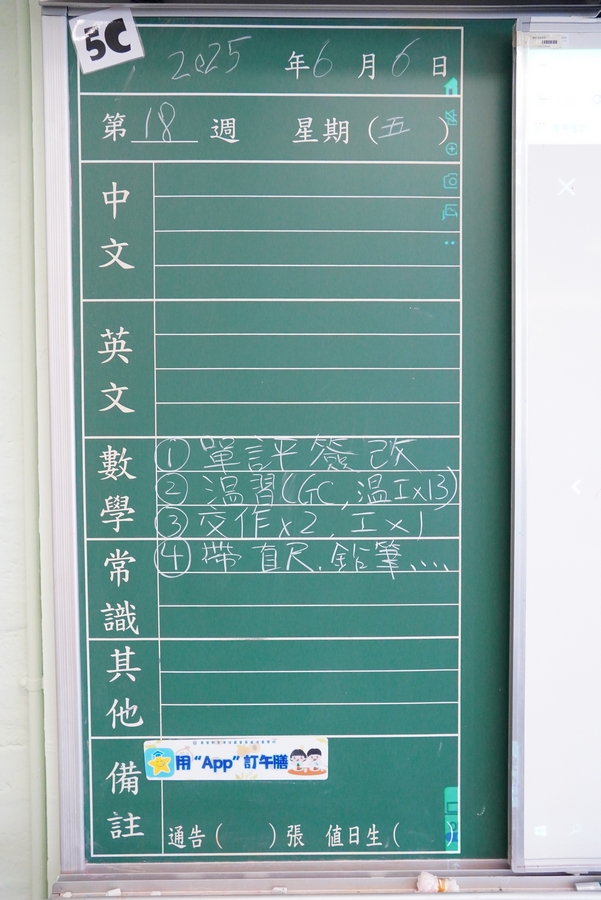 5C
2025年6月6日
第18週 星期(五)
中文
英文
數學
① 單評簽改
② 温習(GC,温工x13)
③ 交作x2,工x1
④ 帶直尺.鉛筆....
常識
其他
備註
用“App”訂午膳
通告( )張 值日生( )